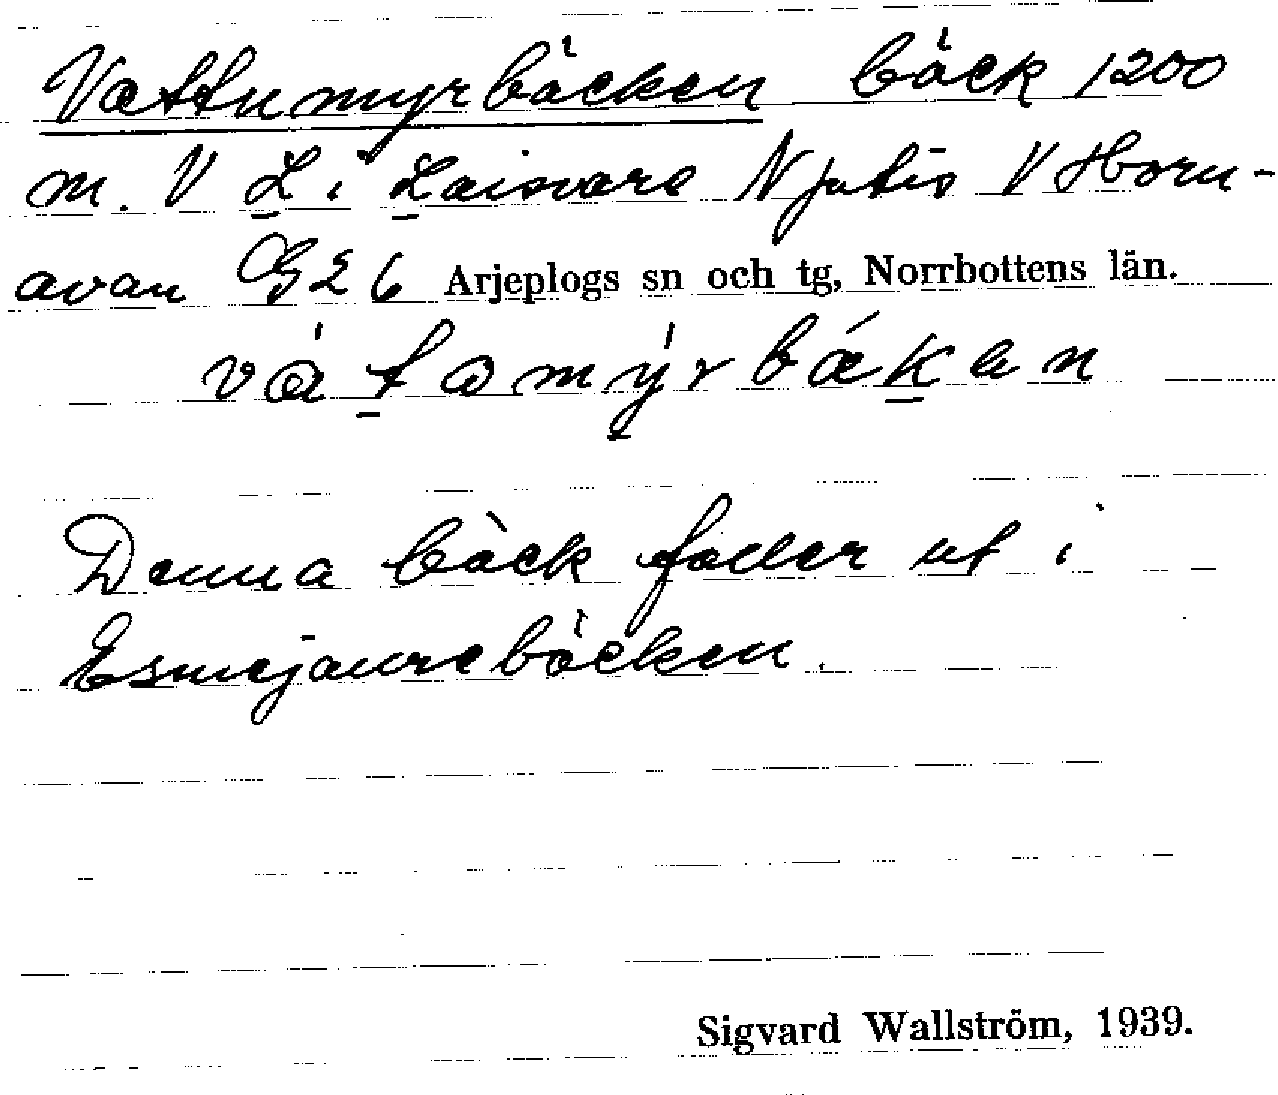 Vattumyrbäcken bäck 1200
m. V L i Laisvare Njutis V Horn-
avan G26 Arjeplogs sn och tg, Norrbottens län.
Denna bäck faller ut i
Esmejaurebäcken.
Sigvard Wallström, 1939.